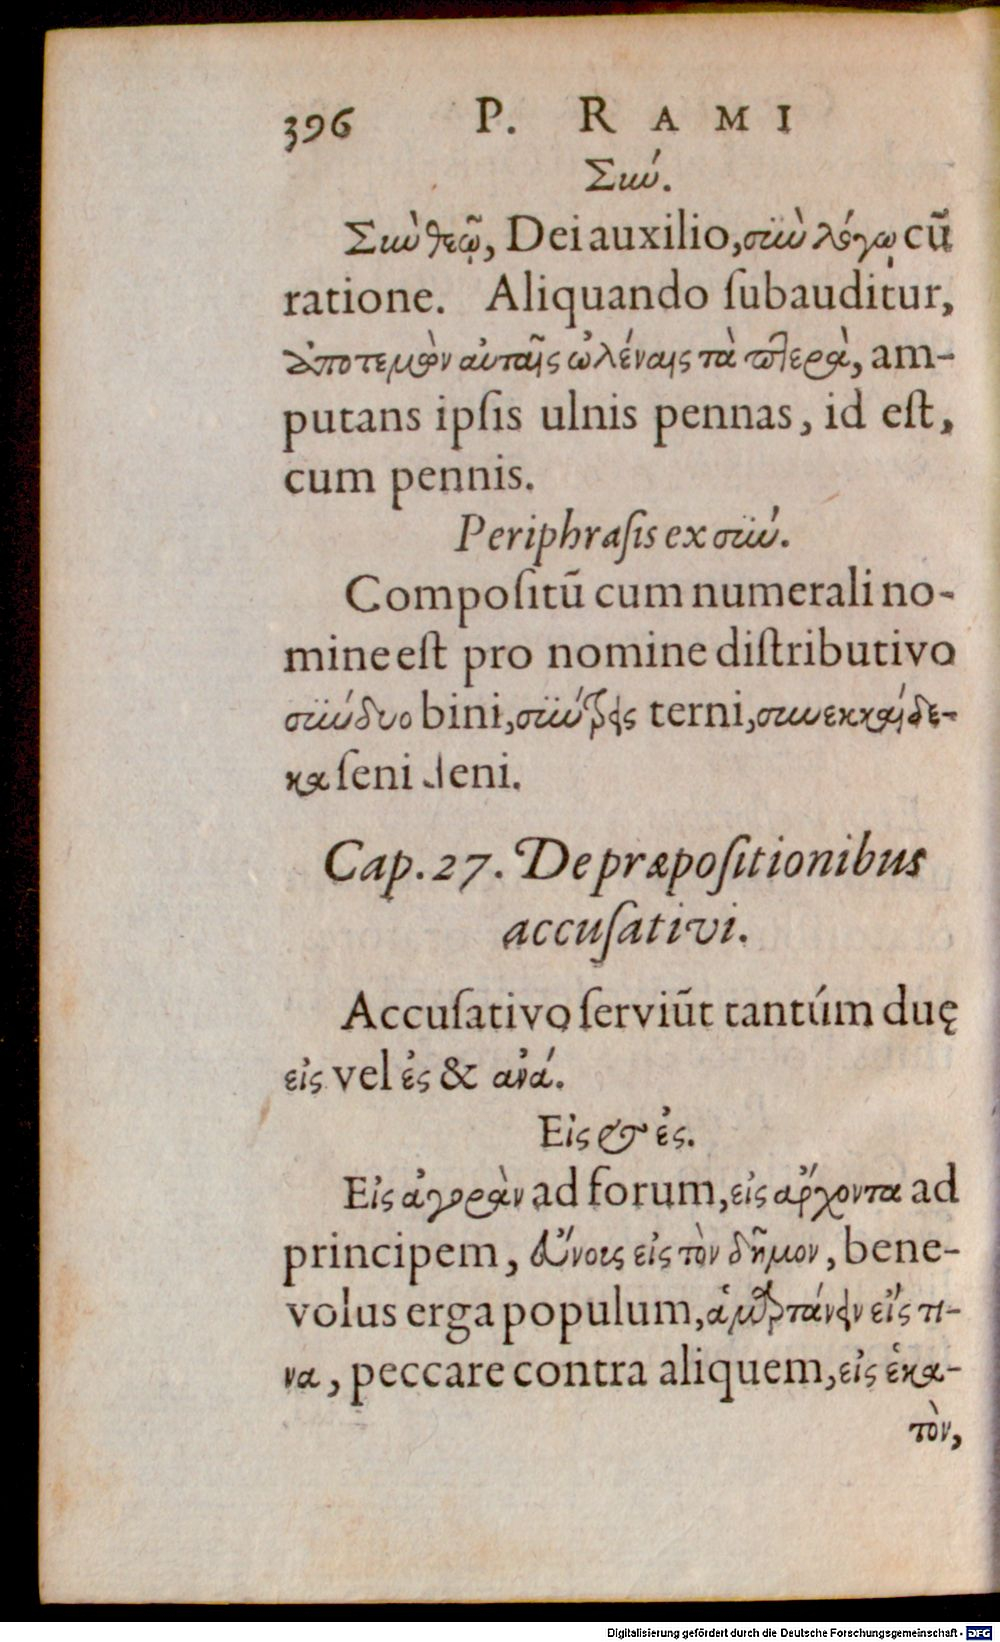 396 P. RAMI
Σύν.
Σὺν θεῷ, Dei auxilio, σὺν λόγῳ cū
ratione. Aliquando ſubauditur,
ἀποτεμὼν αὐταῖς ὠλέναις τὰ πτερὰ, am-
putans ipſis ulnis pennas, id eſt,
cum pennis.
Periphraſis ex σύν.
Compoſitū cum numerali no-
mine eſt pro nomine diſtributivo
σύνδυο bini, σύντρεις terni, συνεκκαίδε-
κα ſeni deni.
Cap. 27. De præpoſitionibus
accuſativi.
Accuſativo ſerviūt tantúm duę
εἰς vel ἐς & ἀνά.
Εἰς & ἐς.
Εἰς ἀγορὰν ad forum, εἰς ἄρχοντα ad
principem, εὔνους εἰς τὸν δῆμον, bene-
volus erga populum, ἁμαρτάνειν εἴς τι-
να, peccare contra aliquem, εἰς ἑκα-
τὸν,
Digitalisierung gefördert durch die Deutsche Forschungsgemeinschaft - DFG